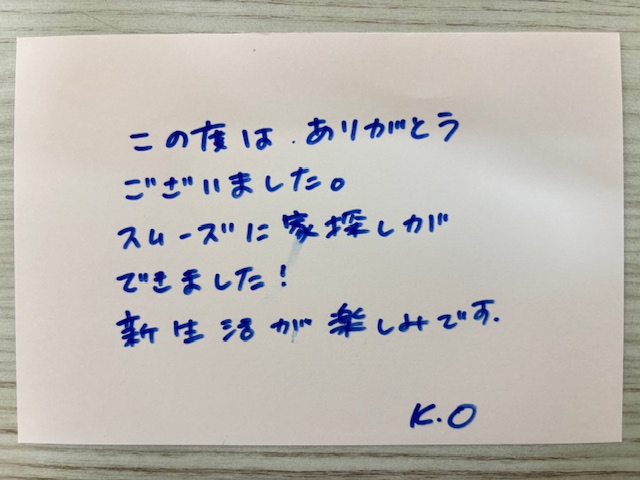 この度は、ありがとう
ございました。
スムーズに家探しが
できました!
新生活が楽しみです.
K.O